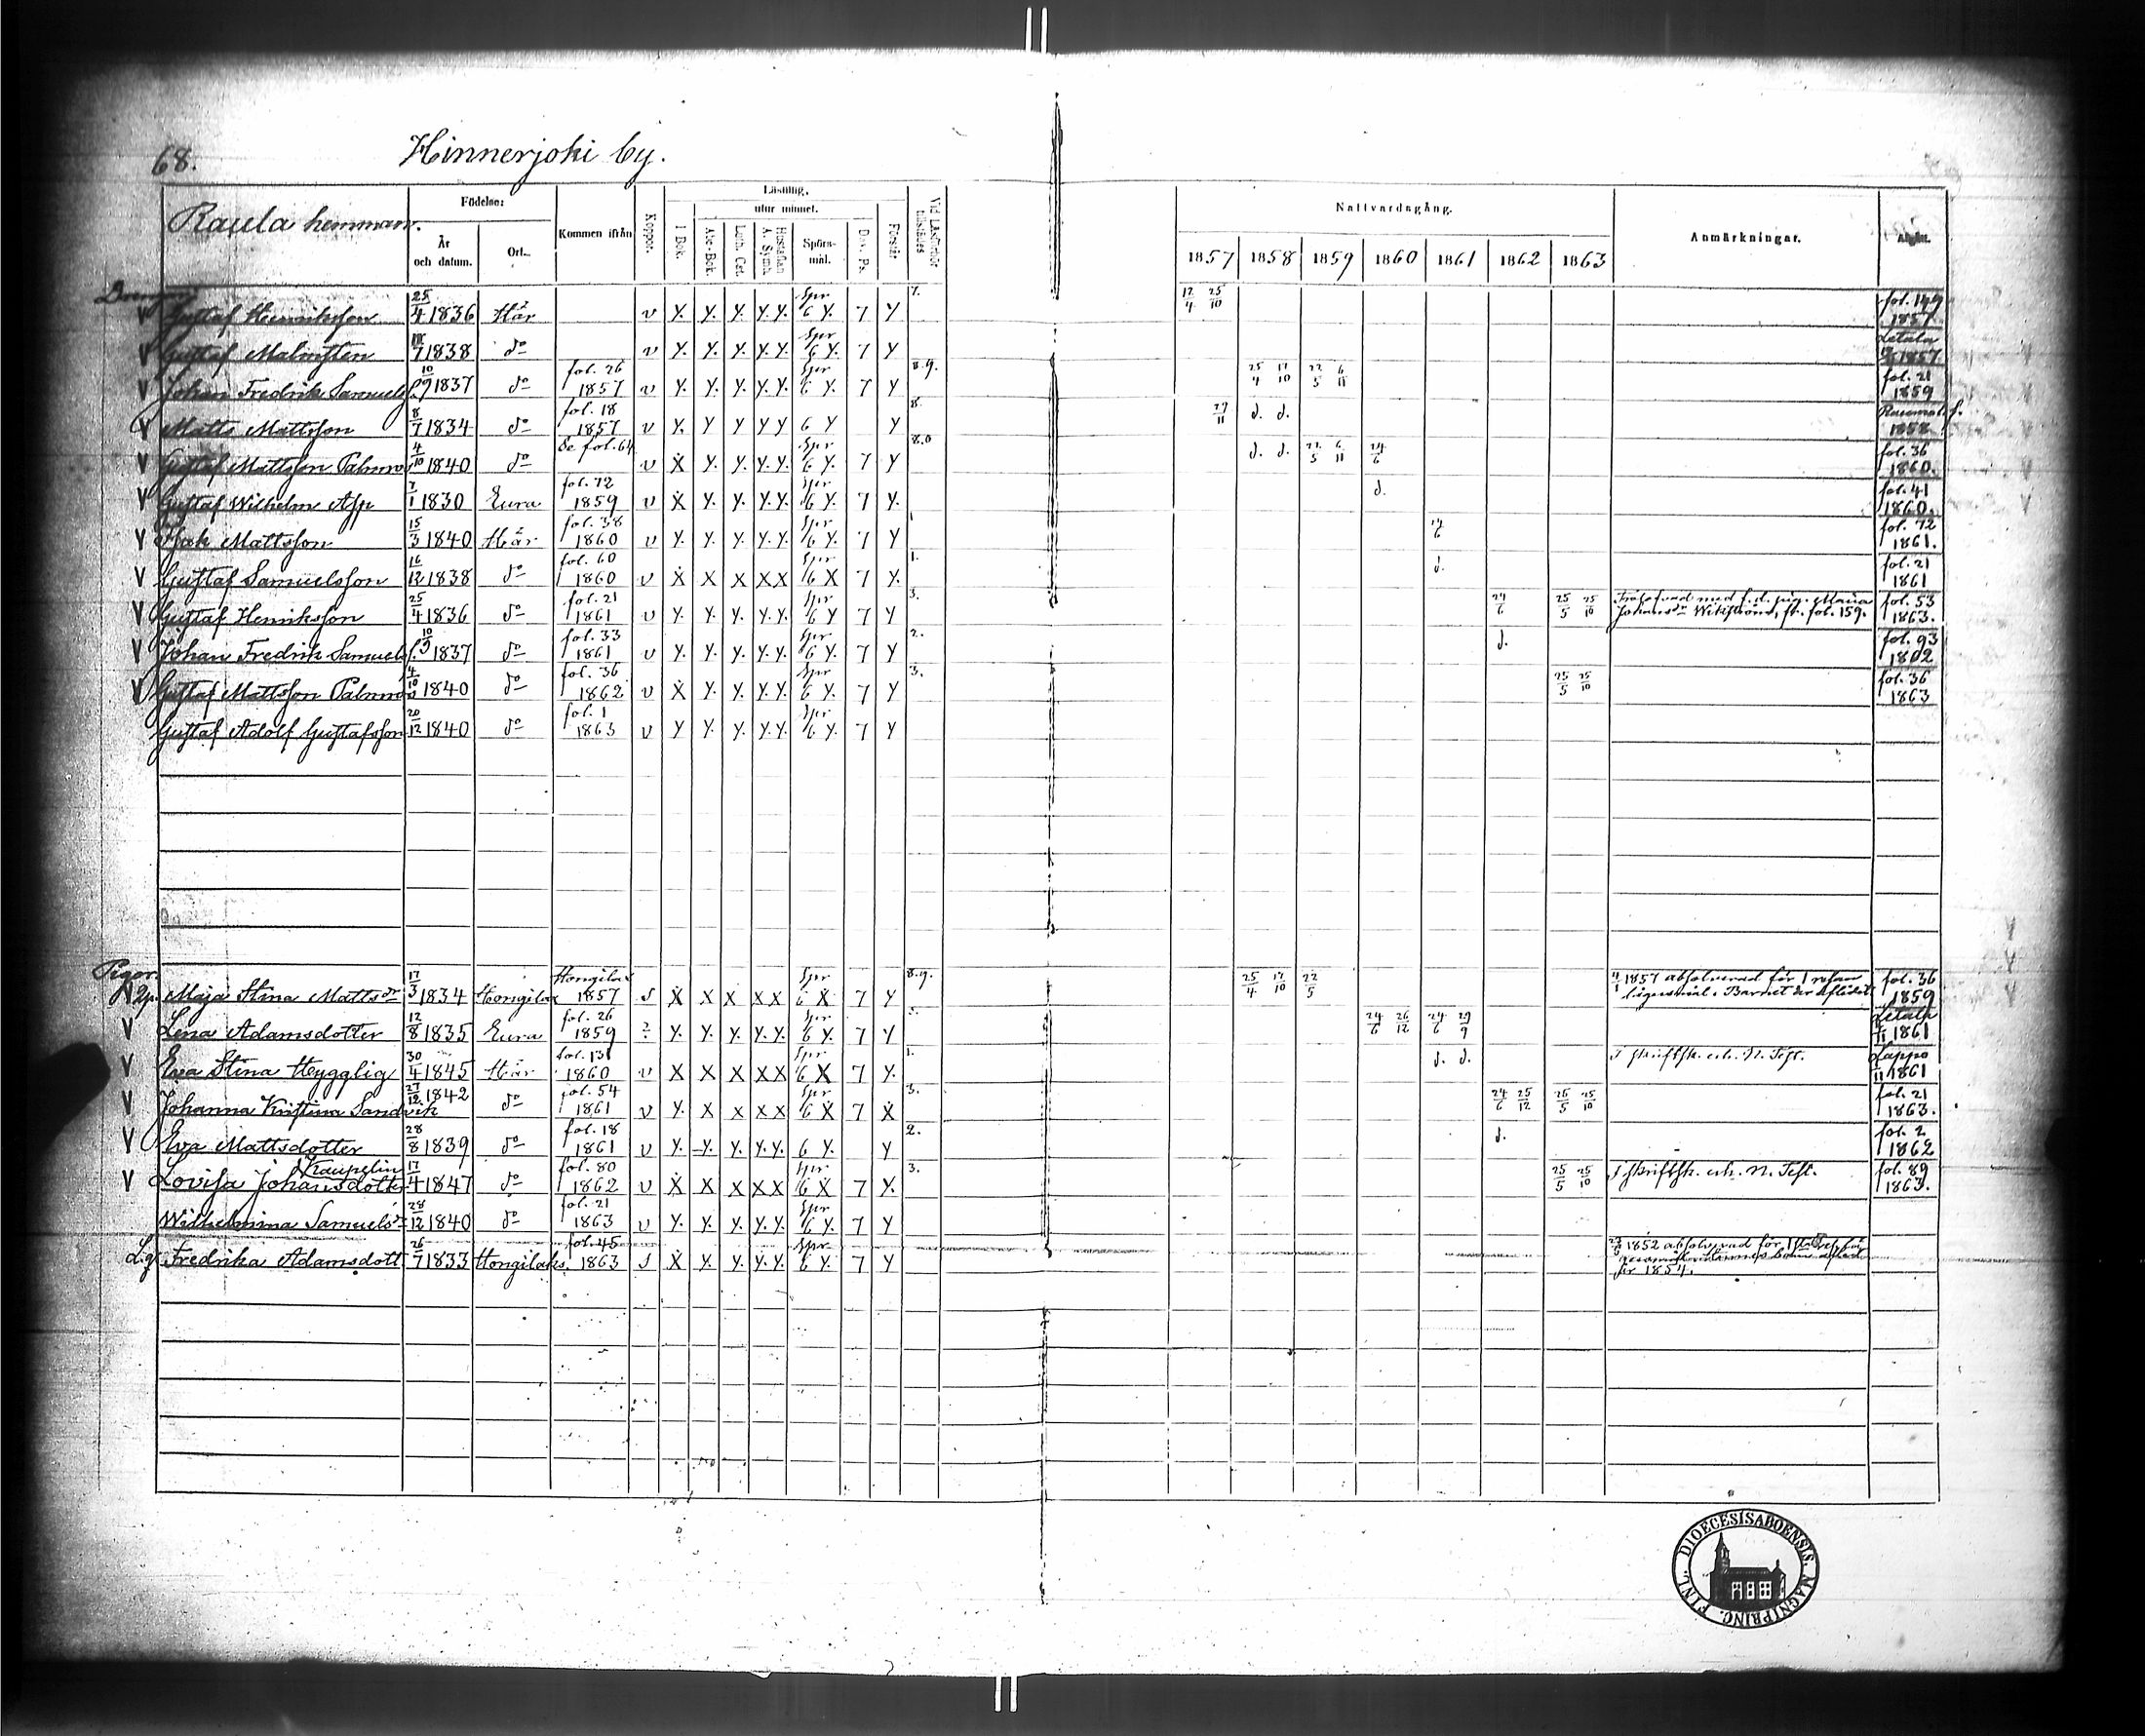 68. Hinnerjoki by.
Raula hemman.
Födelse:
År och datum.
Ort.
Kommen ifrån
Koppor.
Läslitig,
utur minnet.
I Bok.
Abc-Bok.
Luth. Cat.
Hustaflan A. Symb.
Spörs-mål.
Dav. Ps.
Förstår
Vid Läsförhör tillstädes
Nattvardsgång.
1857 1858 1859 1860 1861 1862 1863
Anmärkningar.
Afgått.
V Gustaf Henriksson 25/4 1836 Här v Y. Y. Y. Y. Y. Spr 6 Y. 7 Y 7. 12/4 25/10 fol. 149 1857
V Gustaf Malmsten 7 1838 do v Y. Y. Y. Y. Y. Spr 6 Y. 7 Y Letala 1857.
V Johan Fredrik Samuelss. 10/9 1837 do fol. 26 1857 v Y. Y. Y. Y. Y. Spr 6 Y. 7 Y 8.9. 25/4 17/10 22/5 6/11 fol. 21 1859
V Matts Mattsson 8/7 1834 do fol. 18 1857 v Y. Y Y Y Y 6 Y Y 8. 29/11 d. d. 1858
V Gustaf Mattsson Palmros 4/10 1840 do Se fol. 64 v X Y. Y. Y. Y. Spr 6 Y. 7 Y 8.0 d. d. 22/5 6/11 24/6 fol. 36 1860.
V Gustaf Wilhelm Asp 7/1 1830 Eura fol. 72 1859 v X Y. Y. Y. Y. Spr 6 Y. 7 Y. d. fol. 41 1860.
V Isak Mattsson 15/3 1840 Här fol. 38 1860 v Y. Y. Y. Y. Y. Spr 6 Y. 7 Y 1 fol. 72 1861.
V Gustaf Samuelsson 16/12 1838 do fol. 60 1860 v X X X X X Spr 6 X 7 Y. 1. d. fol. 21 1861
V Gustaf Henriksson 25/4 1836 do fol. 21 1861 v Y. Y. Y. Y. Y. Spr 6 Y 7 Y 3. 24/6 25/5 25/10 Trolofvad med f.d. pig. Maria
Johansdr Wikström, fr. fol. 159. fol. 53 1863.
V Johan Fredrik Samuelss. 10/9 1837 do fol. 33 1861 v Y. Y. Y. Y. Y. Spr 6 Y. 7 Y 2. d. fol. 93 1862
V Gustaf Mattsson Palmros 4/10 1840 do fol. 36 1862 v X Y. Y. Y. Y. Spr 6 Y. 7 Y 3. 25/5 25/10 fol. 36 1863
Gustaf Adolf Gustafsson 20/12 1840 do fol. 1 1863 v Y Y. Y. Y. Y. Spr 6 Y. 7 Y
Pigor.
V Maja Stina Mattsdr 17/3 1834 Hongilax Hongilax 1857 s X X X X X Spr 6 X 7 Y 8.9. 25/4 17/10 22/5 1857 absolverad för
lägersmål. Barnet är aflidet fol. 36 1859
V Lena Adamsdotter 12/8 1835 Eura fol. 26 1859 ? Y. Y. Y. Y. Y. Spr 6 Y. 7 Y 24/6 26/12 24/6 29/9 Letala 1861
V Eva Stina Heygglig 30/4 1845 Här fol. 131 1860 v X X X X X Spr 6 X 7 Y. 1. d. d. I skriftsk. erh. N. Test. Lappo 1861
V Johanna Kristina Sandvik 27/12 1842 do fol. 54 1861 v Y. X X X X Spr 6 X 7 X 3. 24/6 25/12 25/5 25/10 fol. 21 1863.
V Eva Mattsdotter 28/8 1839 do fol. 18 1861 v Y. Y. Y. Y. Y. 6 Y. Y 2. d. fol. 2 1862
V Lovisa Johansdotter 17/4 1847 do fol. 80 1862 v X X X X X Spr 6 X 7 Y. 3. 25/5 25/10 I skriftsk. erh. N. Test. fol. 89 1863.
Wilhelmina Samuelsdr 28/12 1840 do fol. 21 1863 v Y. Y. Y. Y. Y. Spr 6 Y. 7 Y
Fredrika Adamsdott. 26/7 1833 Hongilaks. fol. 45 1863 s X Y. Y. Y. Y. Spr 6 Y. 7 Y 1852 absolverad för
Hennes barn
1854.
FINL. DIOECESIS ABOENSIS. MAGNI PRINC.